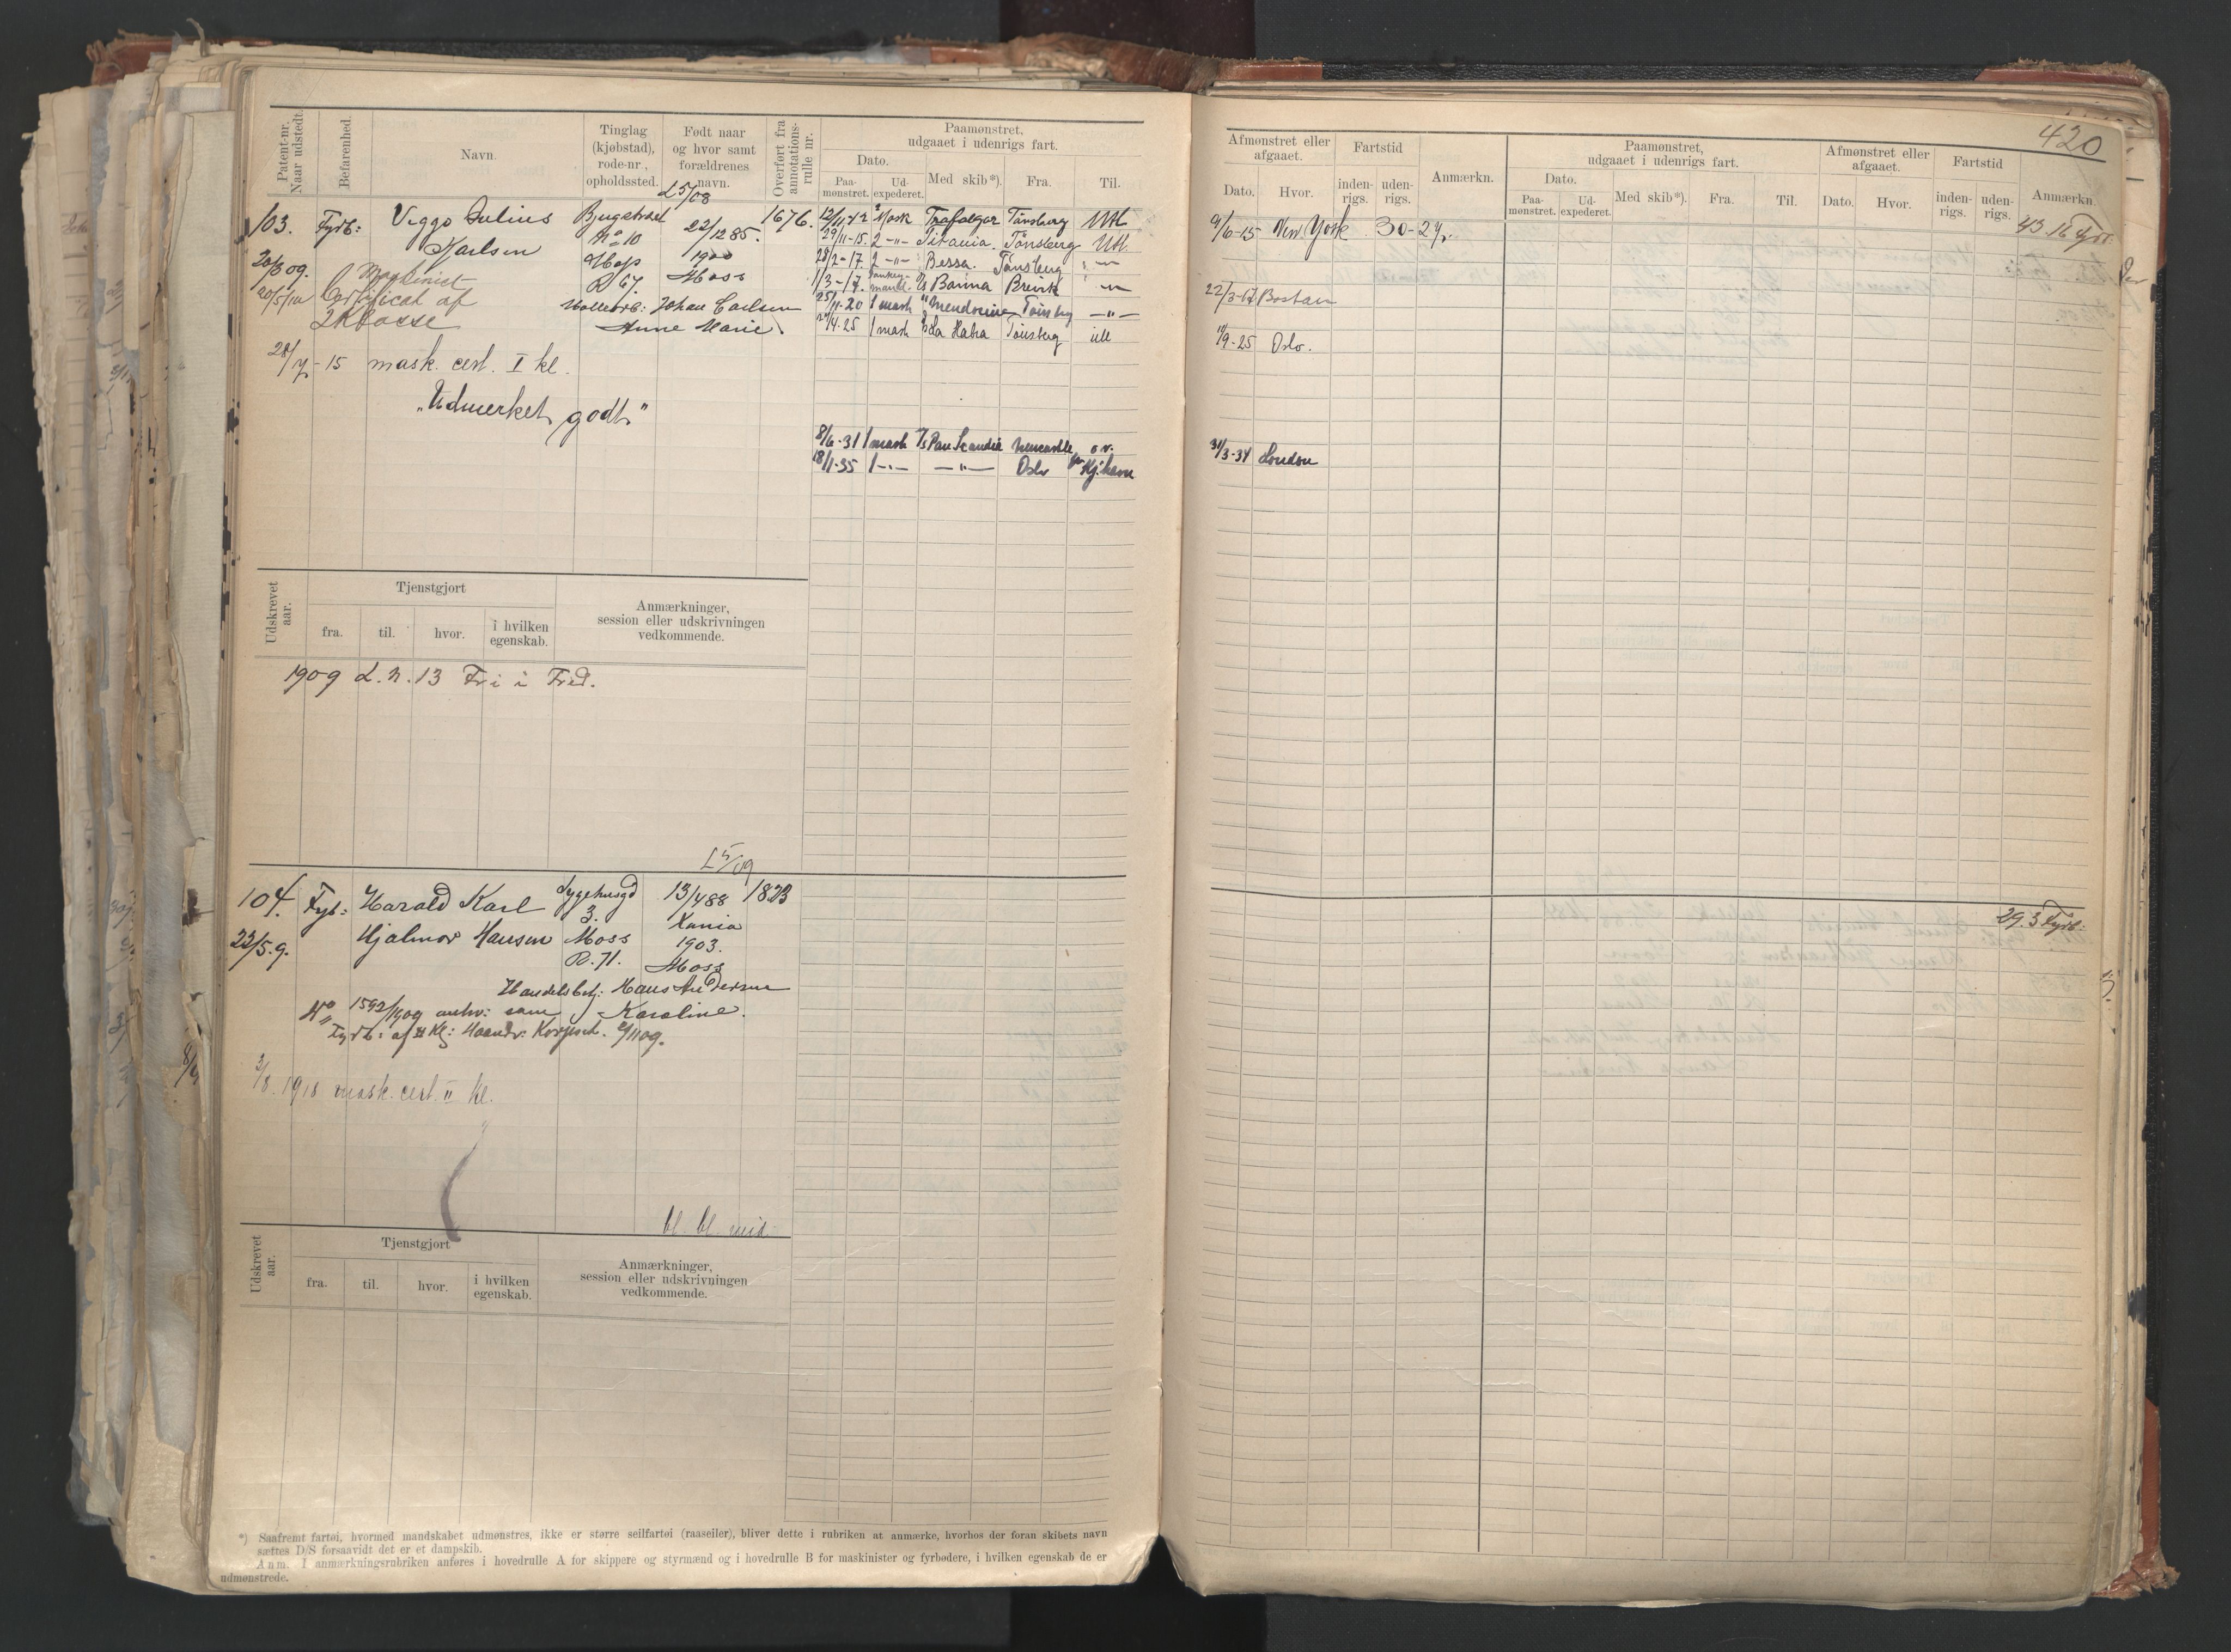 420
Patent-nr. Naar udstedt.
Befarenhed.
Navn.
Tinglag (kjøbstad), rode-nr., opholdssted.
Født naar og hvor samt forældrenes navn.
Overført fra annotations-rulle nr.
Paamønstret, udgaaet i udenrigs fart.
Dato.
Paa-mønstret.
Ud-expederet.
Med skib*).
Fra.
Til.
Afmønstret eller afgaaet.
Dato.
Hvor.
Fartstid
inden-rigs.
uden-rigs.
Anmærkn.
Paamønstret, udgaaet i udenrigs fart.
Dato.
Paa-mønstret.
Ud-expederet.
Med skib*).
Fra.
Til.
Afmønstret eller afgaaet.
Dato.
Hvor.
Fartstid
inden-rigs.
uden-rigs.
Anmærkn.
L 5/08
103. Fyrb: Viggo Julius 1676.
Karlsen No 10 22/12 85.
20/3 09. 1900
R 67. Moss
20/5 10 Maskinist
Certificat af
2 Klasse
Johan Carlsen
Anne Marie.
28/7-15 mask. cert. I kl.
"Udmerket godt"
Mask Trafalgar Tønsberg Utl
29/11-15. 2 -"- Titania. Tønsberg Utl.
28/2-17. 2 -"- Bessa. Tønsberg -"-
1/3-17. Brevik -"-
25/11-20 1 mask Mendocino Tønsbg -"-
4.25 1 mask Tønsberg utl
8/6-31 1 mask Pan Scandia Newcastle o.v.
18/1-35 1 -"- -"- Oslo Kj.havn
9/6-15 New York 30-27.
43.16 Fyrb:
22/3-17 Boston
9-25 Oslo.
31/3-34 London
Udskrevet aar.
Tjenstgjort
fra.
til.
hvor.
i hvilken egenskab.
Anmærkninger, session eller udskrivningen vedkommende.
1909 L.n.13 Fri i Fred.
L 5/09
104. Fyrb: Harald Karl Sygehusgd 13/4 88 1823
3. Xania
22/5.9. Hjalmar Hansen Moss 1903.
R. 71. Moss
Handelsbetj: Hans Andersen
No 1592/1909 anhv: som Karoline.
Fyrb: af II Kl:
29.3 Fyrb:
3/8. 1918 mask. cert. II kl.
bl. bl. mid.
Udskrevet aar.
Tjenstgjort
fra.
til.
hvor.
i hvilken egenskab.
Anmærkninger, session eller udskrivningen vedkommende.
*) Saafremt fartøi, hvormed mandskabet udmønstres, ikke er større seilfartøi (raaseiler), bliver dette i rubriken at anmærke, hvorhos der foran skibets navn
sættes D/S forsaavidt det er et dampskib.
Anm. I anmærkningsrubriken anføres i hovedrulle A for skippere og styrmænd og i hovedrulle B for maskinister og fyrbødere, i hvilken egenskab de er
udmønstrede.